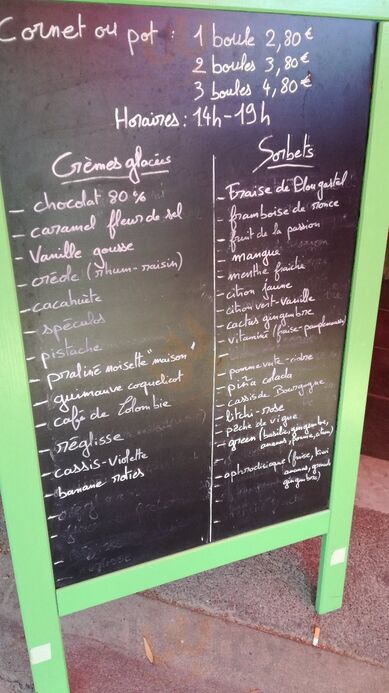 Cornet ou pot : 1 boule 2,80€
2 boules 3,80€
3 boules 4,80€
Horaires : 14h-19h
Crèmes glacées
- chocolat 80%
- caramel fleur de sel
- Vanille gousse
- créole (rhum-raisin)
- cacahuète
- spéculos
- pistache
- praliné noisette "maison"
- guimauve coquelicot
- café de Colombie
- réglisse
- cassis-violette
- banane roties
Sorbets
- Fraise de Plougastel
- framboise de ronce
- fruit de la passion
- mangue
- menthe fraiche
- citron jaune
- citron vert-Vanille
- cactus gingembre
- vitaminé (fraise-pamplemousse)
- pomme verte-
- piña colada
- cassis de Bourgogne
- litchi-rose
- pêche de vigne
- green (basilic, gingembre,
ananas,
- aphrodisiaque (fraise, kiwi
ananas,
gingembre)